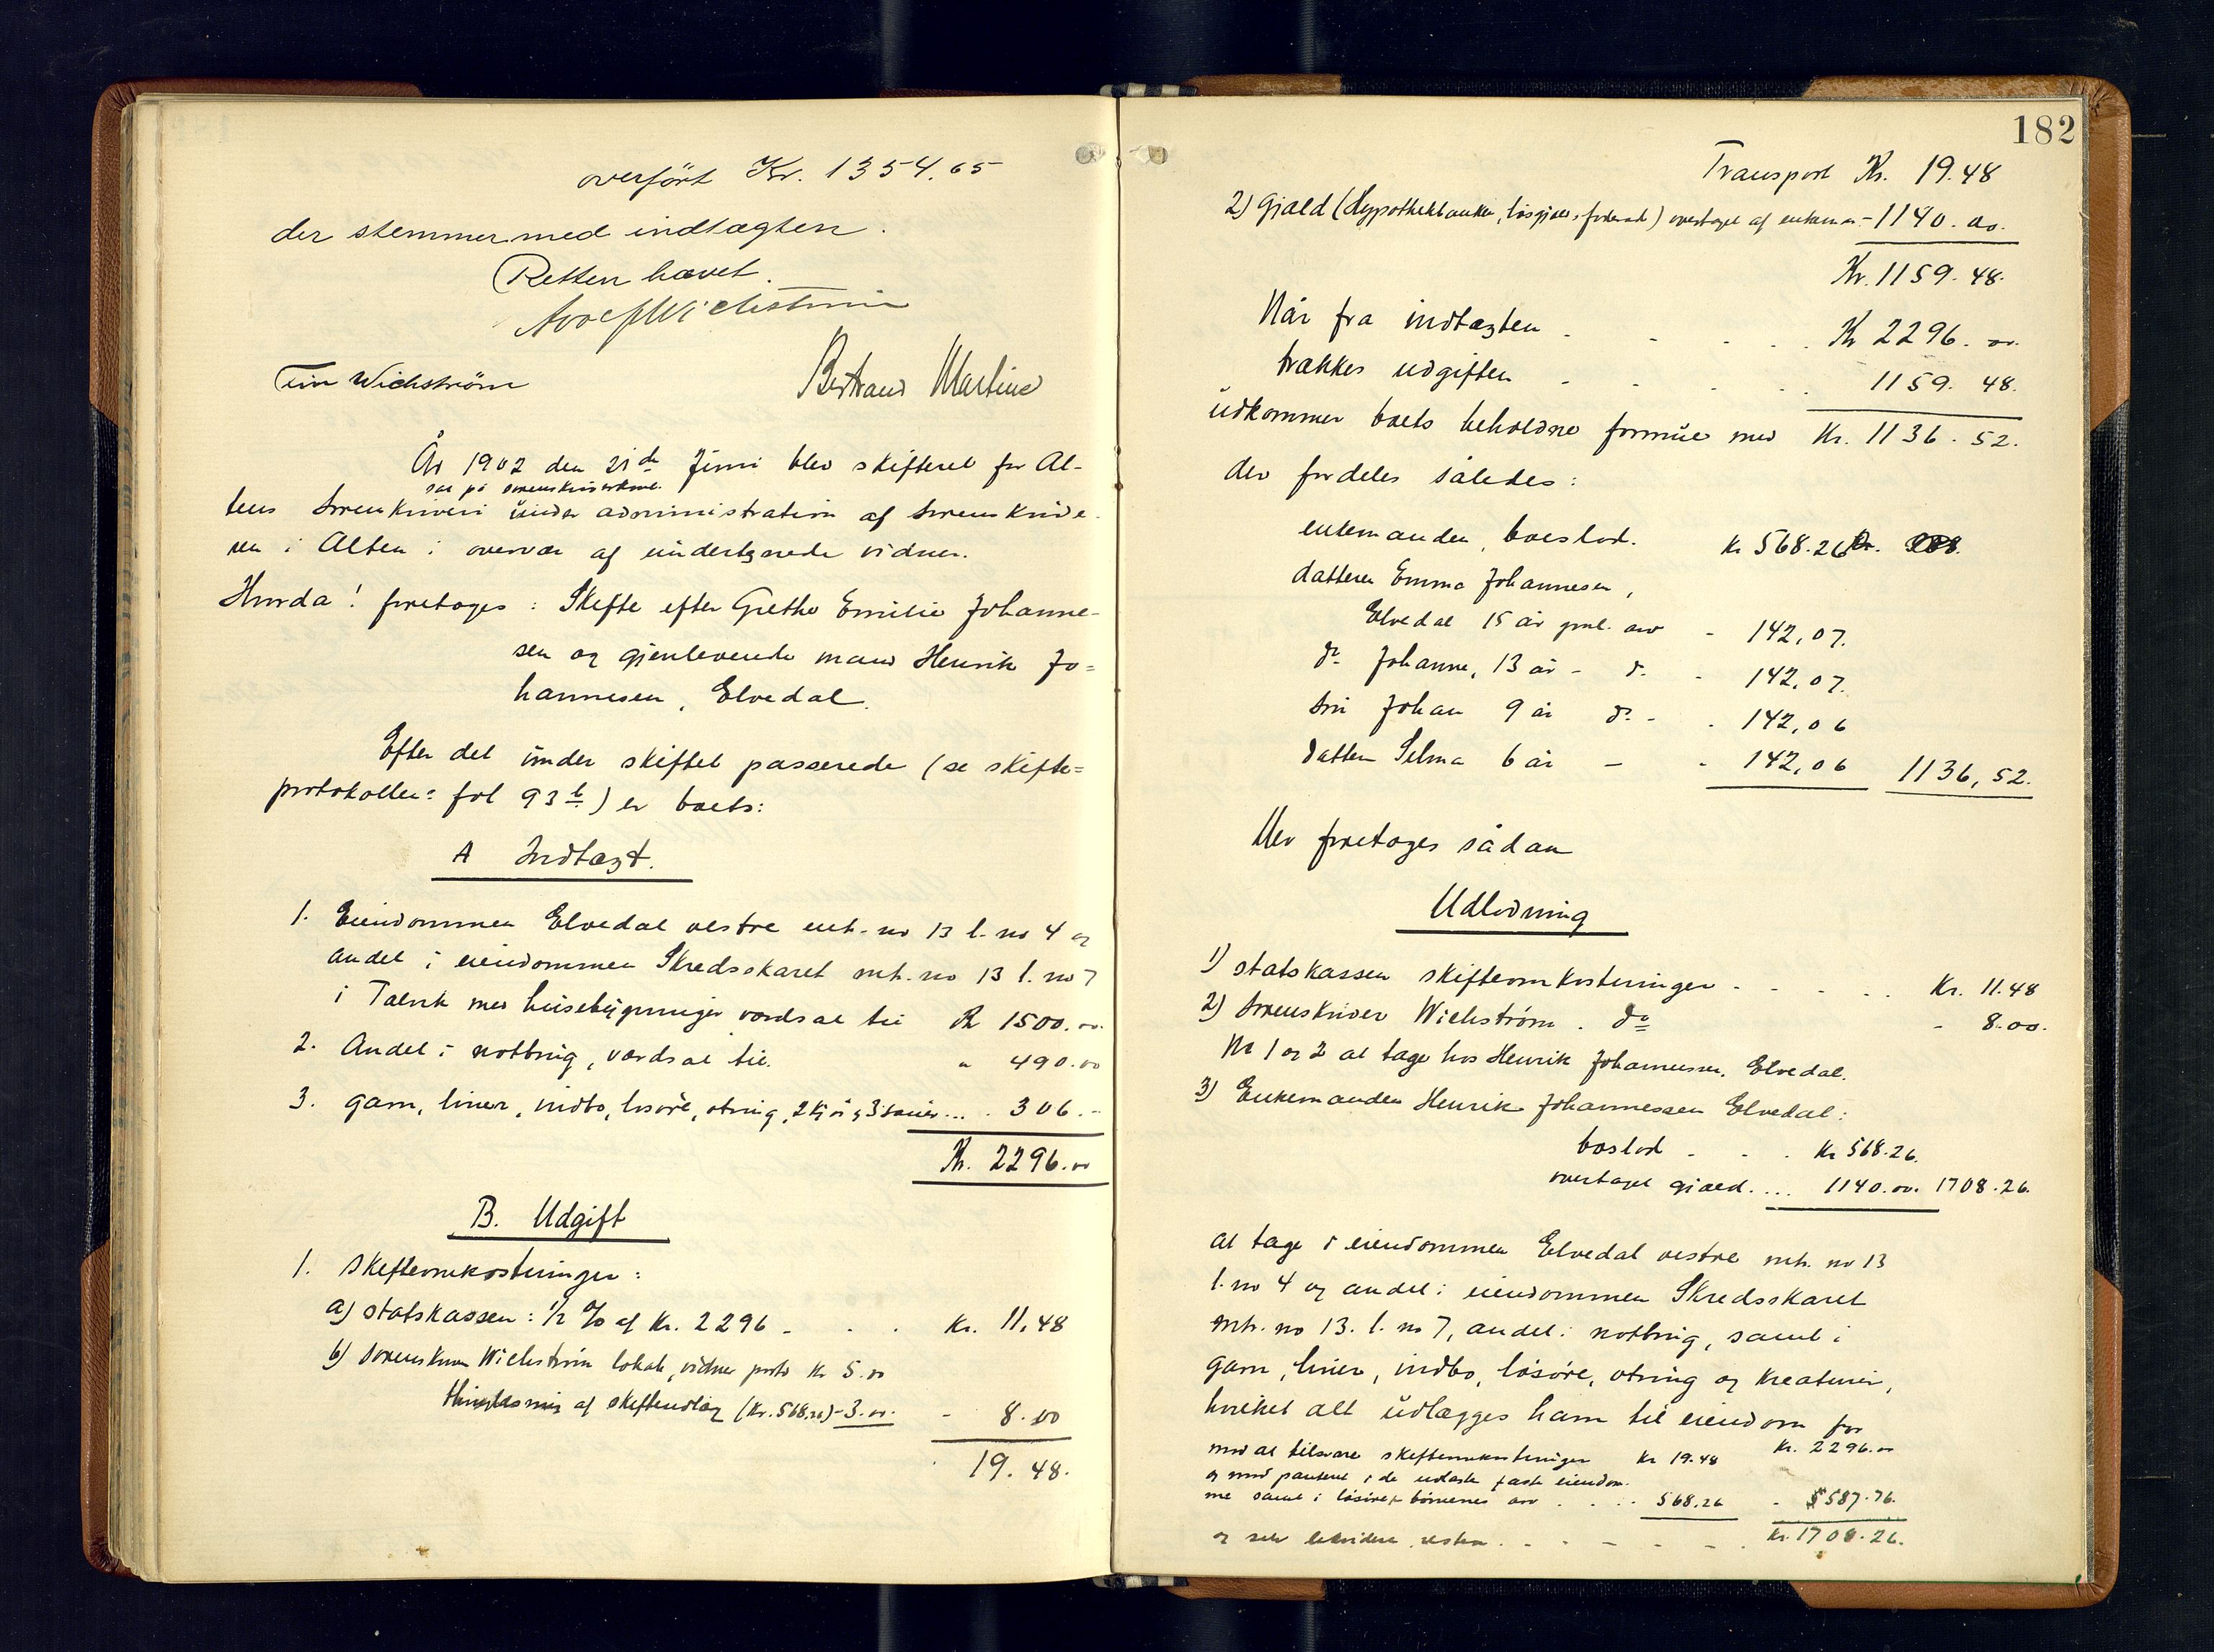 overført Kr. 1354.65
der stemmer med indtægten.
Retten hævet.
Adolf Wichstrøm
Wichstrøm
Bertrand Martin
År 1902 den 21de Juni blev skifteret for Al-
sat på sorenskriverkont.
tens Sorenskriveri under administration af sorenskrive-
ren i Alten i overvær af undertegnede vidner.
Hvorda! foretoges: Skifte efter Grethe Emilie Johanne-
sen og gjenlevende mand Henrik Jo=
hannesen, Elvedal.
Efter det under skiftet passerede (se skifte=
protokollen: fol 93b) er boets:
A Indtægt.
1. Eiendommen Elvedal vestre mt. no 13 l. no 4 og
andel i eiendommen Skredsskaret mt. no 13 l. no 7
i Talvik med husebygninger værdsat til Kr 1500.00
2. Andel i notbrug, værdsat til. " 490.00
3. garn, liner, indbo, løsøre, otring, 2 kjør og 3 sauer ... 306.-
Kr. 2296.00
B. Udgift
1. Skifteomkostninger:
a) statskassen: 1/2 % af Kr. 2296 - . . Kr. 11.48
b) Sorenskriver Wichstrøm lokale, vidner porto Kr 5.00
thinglæsning af skifteudlæg (Kr. 568.26) - 3.00. - 8.00
19.48.
182
Transport Kr. 19.48
2) Gjæld (Hypothekbanken, løsgjæld, ) overtaget af enkeman - 1140.00.
Kr. 1159.48.
Når fra indtægten - - - . . Kr 2296.00.
trækkes udgiften - - - . . 1159.48.
udkommer boets beholdne formue med Kr. 1136.52.
der fordeles således:
enkemanden, boeslod. Kr 568.26
datteren Emma Johannesen,
Elvedal 15 år gml. arv - 142,07.
do Johanne, 13 år - do. - 142,07.
søn Johan 9 år do - . 142,06
datter Selma 6 år - - 142,06 1136,52.
Der foretoges sådan
Udlodning
1) statskassen skifteomkostninger - - - . . Kr. 11.48
2) Sorenskriver Wichstrøm. do - 8.00.
Nr 1 og 2 at tage hos Henrik Johannessen, Elvedal.
3) Enkemanden Henrik Johannessen Elvedal:
boslod - - . Kr 568.26.
overtaget gjæld. ... 1140.00. 1708.26.
at tage i eiendommen Elvedal vestre mt. no 13
l. no 4 og andel i eiendommen Skredsskaret
mt. no 13. l. no 7, andel i notbrug, samt i
garn, liner, indbo, løsøre, otring og kreaturer,
hvilket alt udlægges ham til eiendom for
Kr. 2296.00
mod at tilsvare skifteomkostninger Kr 19.48
og mod panteret i de udlagte faste eiendom-
me samt i løsøret børnenes arv . . . . 568.26 - 587.76.
og selv likvidere resten . - - - - - . Kr. 1708.26.